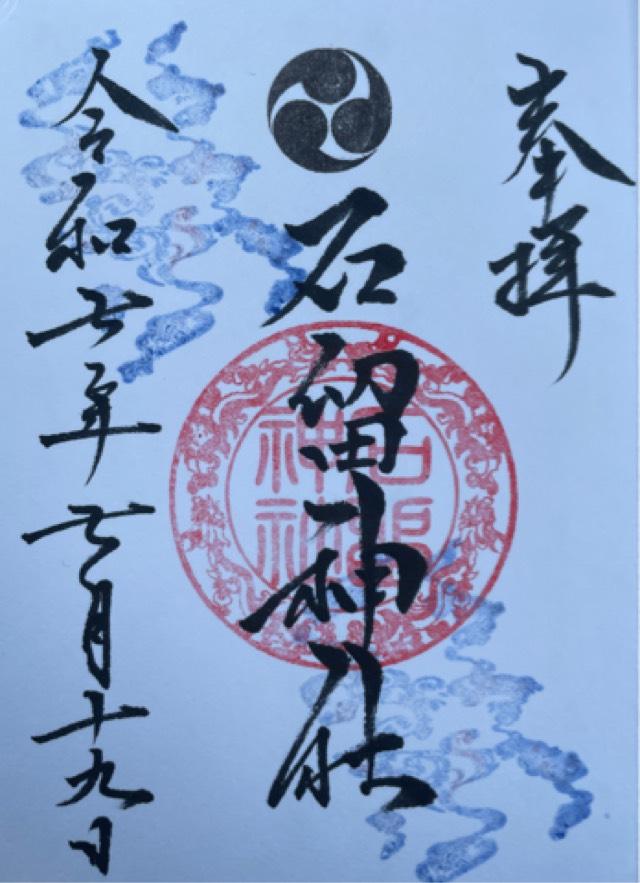 奉拝
石留神社
石留神社
令和七年七月十九日